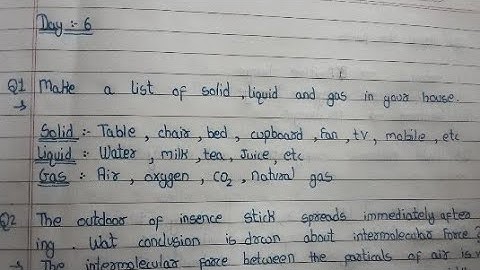 Day :- 6
Q1 Make a list of solid, liquid and gas in your house.
→
Solid :- Table, chair, bed, cupboard, fan, tv, mobile, etc
Liquid :- Water, milk, tea, Juice, etc
Gas :- Air, oxygen, CO2, natural gas
Q2 The outdoor of insence stick spreads immediately after
ing. Wat conclusion is drawn about intermolecular force?
→ The intermolecular force between the particals of air is